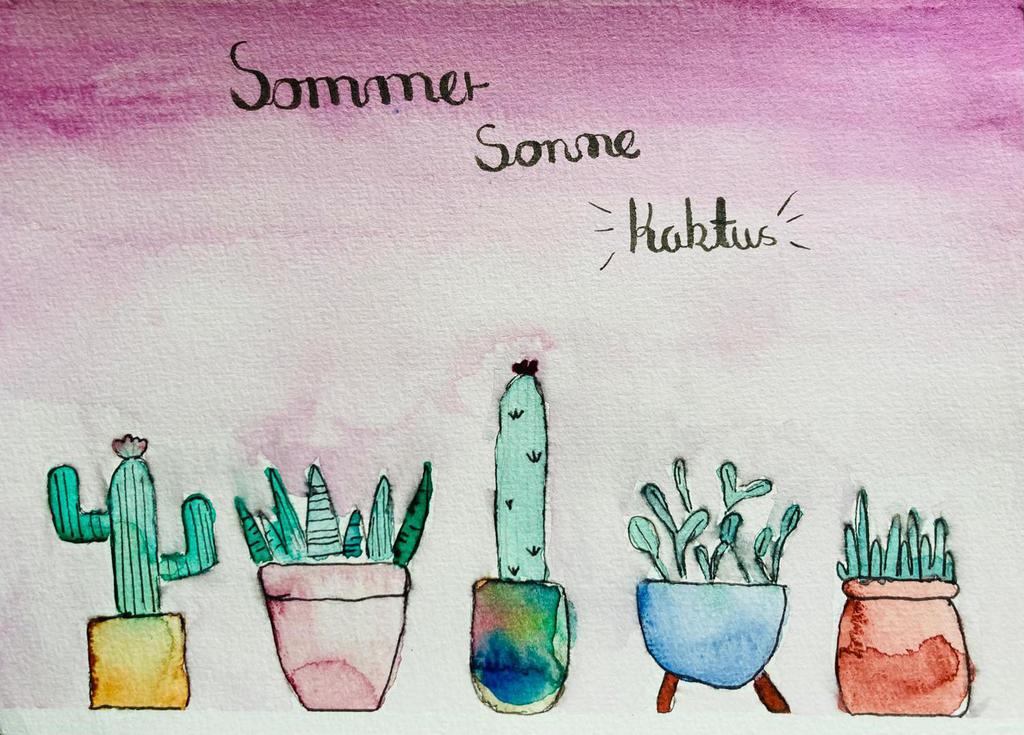 Sommer
Sonne
Kaktus